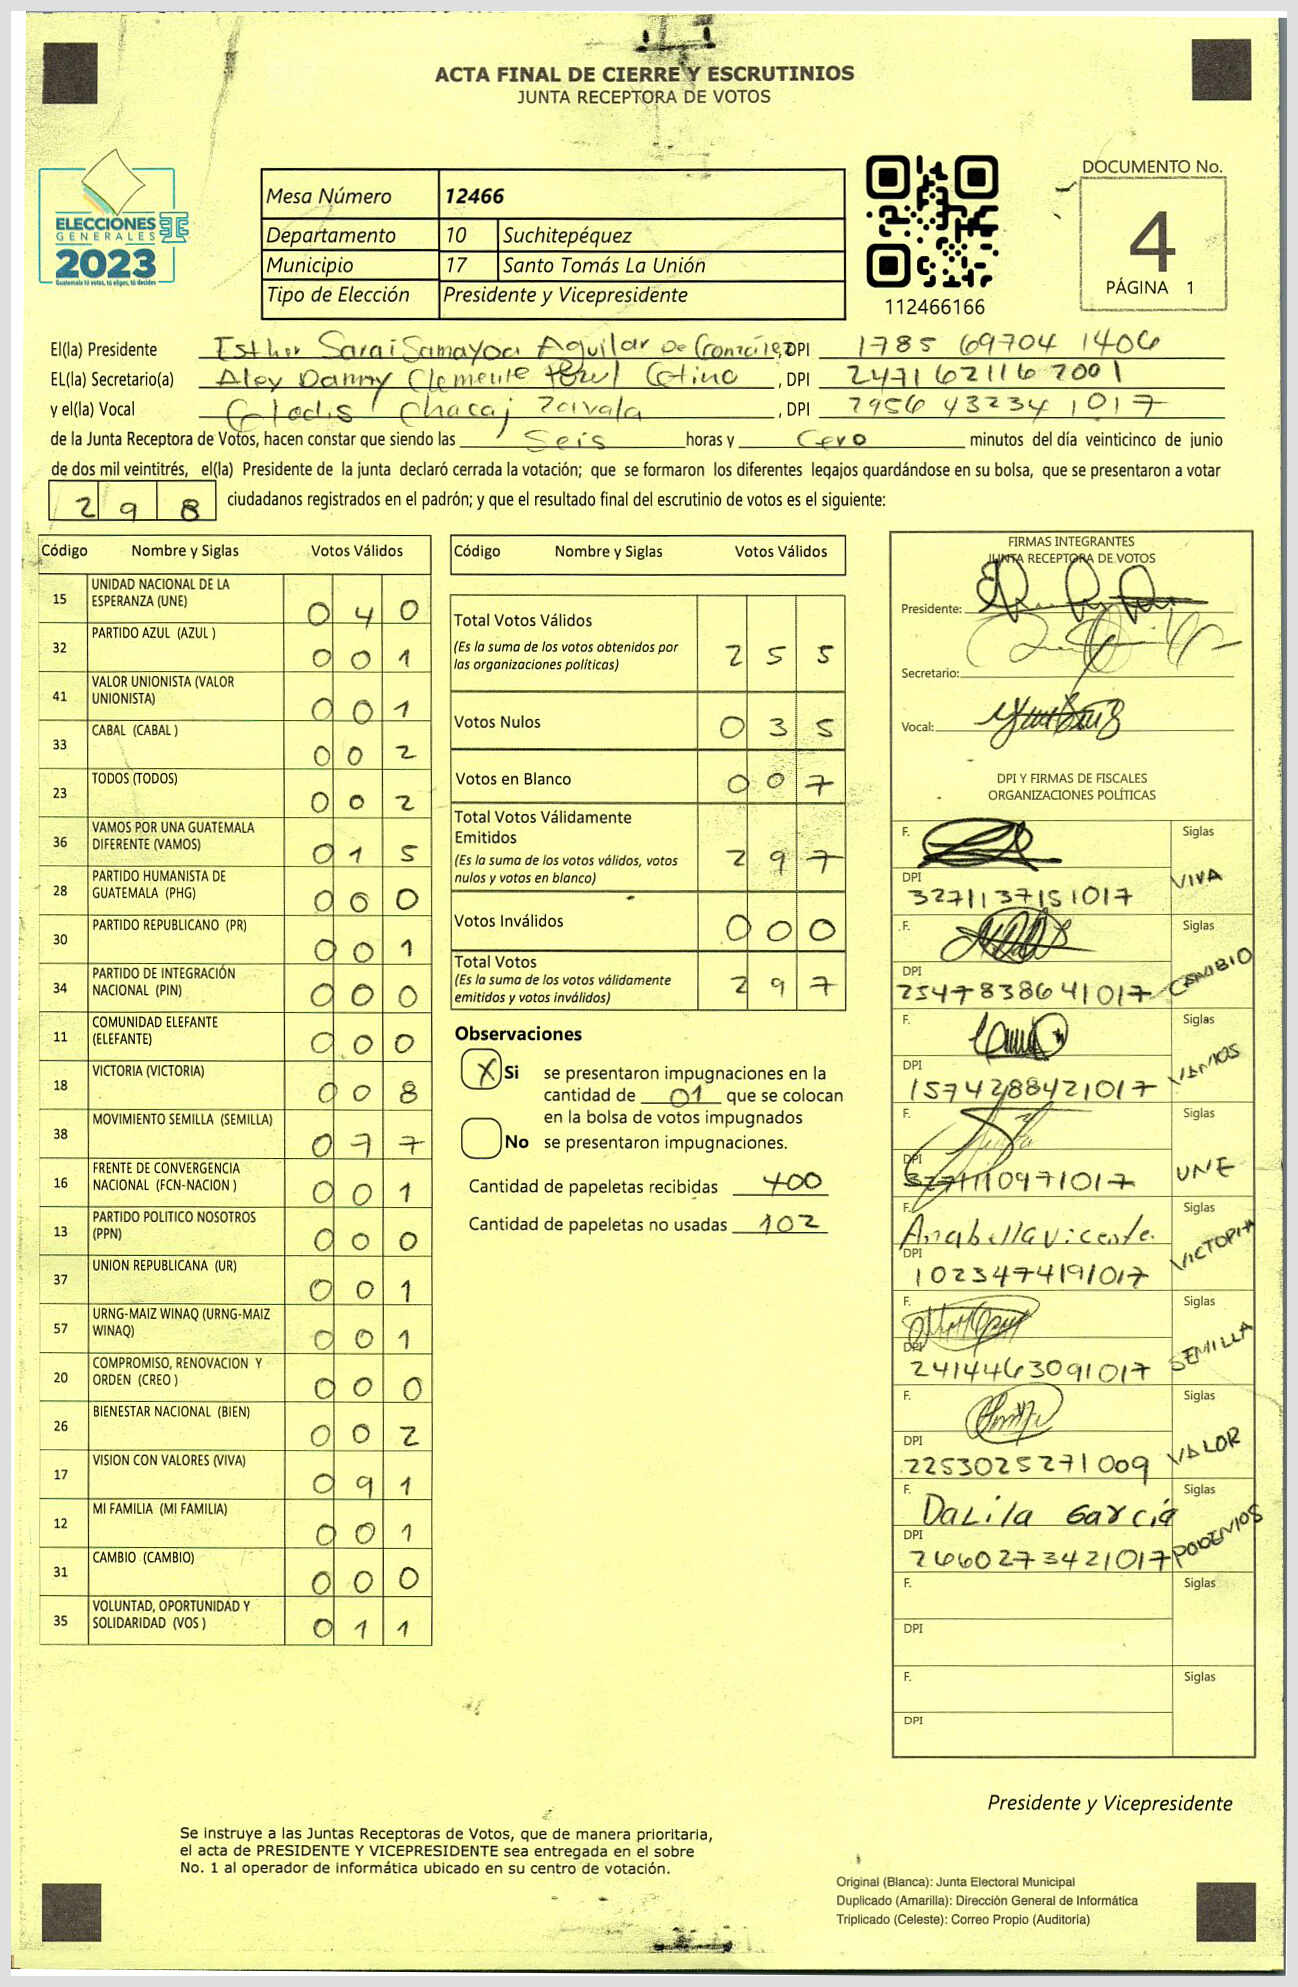 ACTA FINAL DE CIERRE Y ESCRUTINIOS
JUNTA RECEPTORA DE VOTOS
ELECCIONES
GENERALES
2023
Guatemala tú votas, tú eliges, tú decides
Mesa Número 12466
Departamento 10 Suchitepéquez
Municipio 17 Santo Tomás La Unión
Tipo de Elección Presidente y Vicepresidente
112466166
DOCUMENTO No.
4
PÁGINA 1
El(la) Presidente Esther Sarai Samayoa Aguilar De González, DPI 1785 69704 1406
EL(la) Secretario(a) Aley Danny Clemente Cotino, DPI 2471 62116 2001
y el(la) Vocal Gladis Chacaj Zavala, DPI 2956 43234 1017
de la Junta Receptora de Votos, hacen constar que siendo las Seis horas y Cero minutos del día veinticinco de junio
de dos mil veintitrés, el(la) Presidente de la junta declaró cerrada la votación; que se formaron los diferentes legajos guardándose en su bolsa, que se presentaron a votar
298 ciudadanos registrados en el padrón; y que el resultado final del escrutinio de votos es el siguiente:
Código Nombre y Siglas Votos Válidos
15 UNIDAD NACIONAL DE LA ESPERANZA (UNE) 040
32 PARTIDO AZUL (AZUL ) 001
41 VALOR UNIONISTA (VALOR UNIONISTA) 001
33 CABAL (CABAL ) 002
23 TODOS (TODOS) 002
36 VAMOS POR UNA GUATEMALA DIFERENTE (VAMOS) 015
28 PARTIDO HUMANISTA DE GUATEMALA (PHG) 000
30 PARTIDO REPUBLICANO (PR) 001
34 PARTIDO DE INTEGRACIÓN NACIONAL (PIN) 000
11 COMUNIDAD ELEFANTE (ELEFANTE) 000
18 VICTORIA (VICTORIA) 008
38 MOVIMIENTO SEMILLA (SEMILLA) 077
16 FRENTE DE CONVERGENCIA NACIONAL (FCN-NACION ) 001
13 PARTIDO POLITICO NOSOTROS (PPN) 000
37 UNION REPUBLICANA (UR) 001
57 URNG-MAIZ WINAQ (URNG-MAIZ WINAQ) 001
20 COMPROMISO, RENOVACION Y ORDEN (CREO ) 000
26 BIENESTAR NACIONAL (BIEN) 002
17 VISION CON VALORES (VIVA) 091
12 MI FAMILIA (MI FAMILIA) 001
31 CAMBIO (CAMBIO) 000
35 VOLUNTAD, OPORTUNIDAD Y SOLIDARIDAD (VOS ) 011
Código Nombre y Siglas Votos Válidos
Total Votos Válidos
(Es la suma de los votos obtenidos por
las organizaciones políticas) 255
Votos Nulos 035
Votos en Blanco 007
Total Votos Válidamente
Emitidos
(Es la suma de los votos válidos, votos
nulos y votos en blanco) 297
Votos Inválidos 000
Total Votos
(Es la suma de los votos válidamente
emitidos y votos inválidos) 297
Observaciones
X Si se presentaron impugnaciones en la
cantidad de 01 que se colocan
en la bolsa de votos impugnados
No se presentaron impugnaciones.
Cantidad de papeletas recibidas 400
Cantidad de papeletas no usadas 102
FIRMAS INTEGRANTES
JUNTA RECEPTORA DE VOTOS
Presidente:
Secretario:
Vocal:
DPI Y FIRMAS DE FISCALES
ORGANIZACIONES POLÍTICAS
F. Siglas
DPI VIVA
3271137151017
F. Siglas
DPI CAMBIO
2547838641017
F. Siglas
DPI VAMOS
1574288421017
F. Siglas
DPI UNE
3271110971017
F. Siglas
Anabella Vicente
DPI VICTORIA
1023474191017
F. Siglas
DPI SEMILLA
2414463091017
F. Siglas
DPI VALOR
2253025271009
F. Siglas
Dalila Garcia
DPI PODEMOS
2660273421017
F. Siglas
DPI
F. Siglas
DPI
Presidente y Vicepresidente
Se instruye a las Juntas Receptoras de Votos, que de manera prioritaria,
el acta de PRESIDENTE Y VICEPRESIDENTE sea entregada en el sobre
No. 1 al operador de informática ubicado en su centro de votación.
Original (Blanca): Junta Electoral Municipal
Duplicado (Amarilla): Dirección General de Informática
Triplicado (Celeste): Correo Propio (Auditoría)